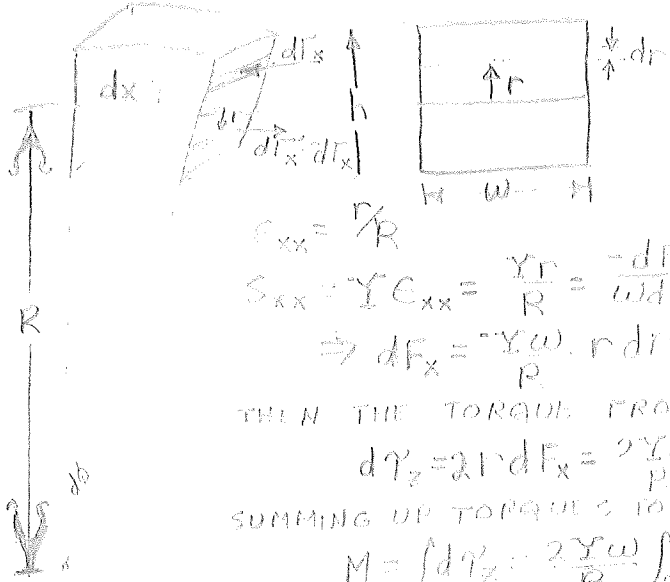 dx
dF_x
r
dF_x
h
r
dr
R
W
dφ
ε_xx = r/R
S_xx = Y ε_xx = Yr/R = -dF / wd
⇒ dF_x = -Yw/R r dr
THEN THE TORQUE FRO
dτ_z = 2r dF_x = 2Y / R
SUMMING UP TORQUES TO
M = ∫dτ_z = 2Yw/R ∫